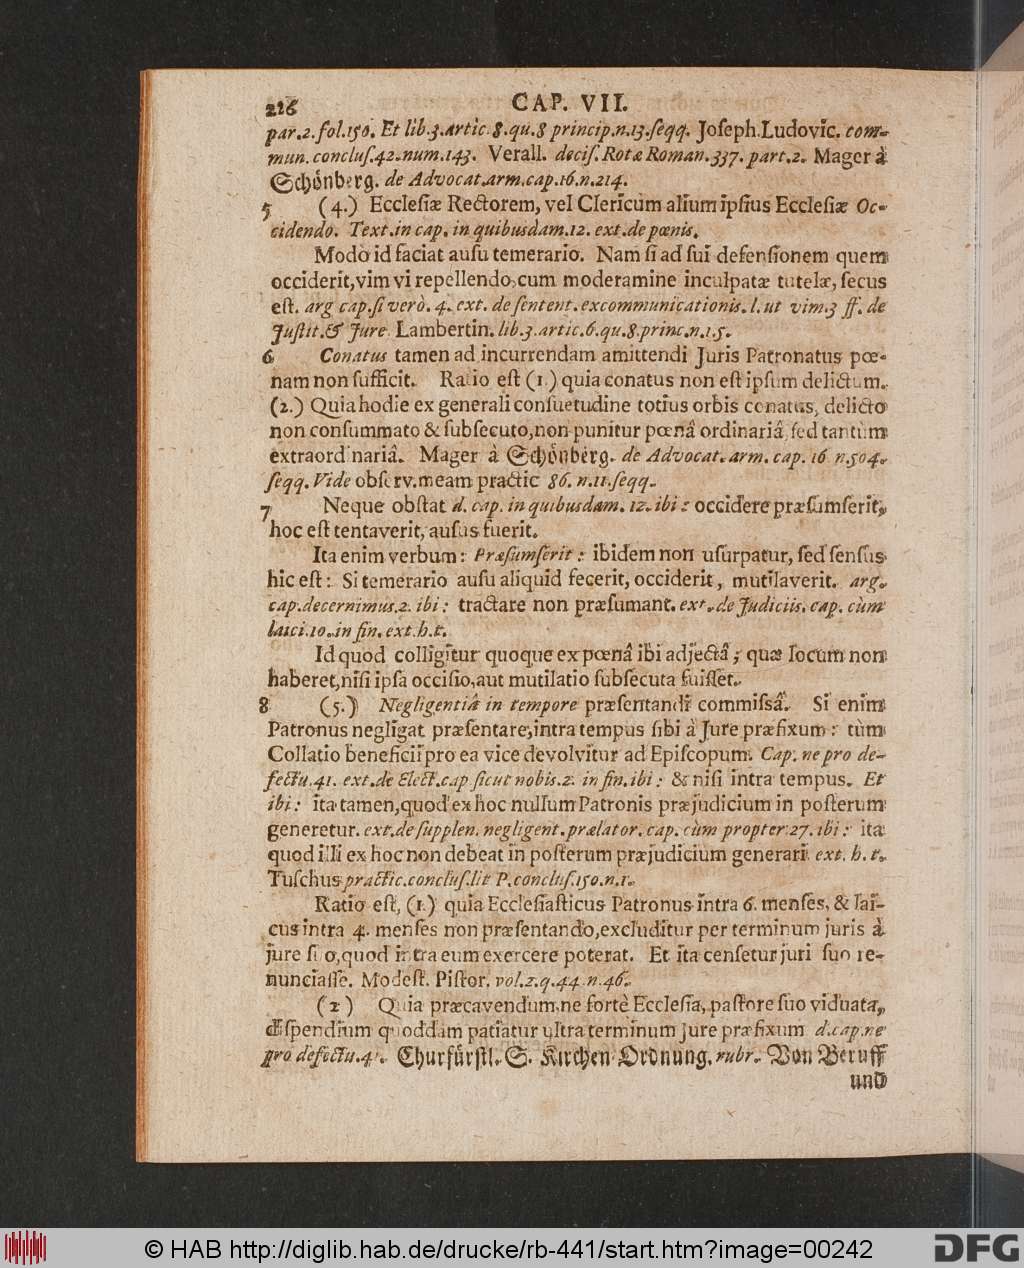 226 CAP. VII.
par.2.fol.150. Et lib.3.artic.8.qu.8 princip.n.13.ſeqq. Joſeph.Ludovic. com-
mun.concluſ.42.num.143. Verall. deciſ. Rotæ Roman.337. part.2. Mager à
Schönberg. de Advocat.arm.cap.16.n.214.
5 (4.) Eccleſiæ Rectorem, vel Clericum alium ipſius Eccleſiæ Oc-
cidendo. Text.in cap. in quibusdam.12. ext.de pœnis.
Modò id faciat auſu temerario. Nam ſi ad ſui defenſionem quem
occiderit,vim vi repellendo,cum moderamine inculpatæ tutelæ, ſecus
eſt. arg cap.ſi verò. 4. ext. de ſentent.excommunicationis. l. ut vim.3 ff. de
Juſtit.& Jure. Lambertin. lib.3.artic.6.qu.8.princ.n.15.
6 Conatus tamen ad incurrendam amittendi Juris Patronatus pœ-
nam non ſufficit. Ratio eſt (1.) quia conatus non eſt ipſum delictum.
(2.) Quia hodie ex generali conſuetudine totius orbis conatus, delicto
non conſummato & ſubſecuto,non punitur pœnâ ordinariâ,ſed tantùm
extraordinariâ. Mager à Schönberg. de Advocat. arm. cap. 16 n.504.
ſeqq. Vide obſerv.meam practic 86. n.11.ſeqq.
7 Neque obſtat d. cap. in quibusdam. 12. ibi: occidere præſumſerit,
hoc eſt tentaverit, auſus fuerit.
Ita enim verbum: Præſumſerit: ibidem non uſurpatur, ſed ſenſus
hic eſt: Si temerario auſu aliquid fecerit, occiderit, mutilaverit. arg.
cap.decernimus.2. ibi: tractare non præſumant. ext. de Judiciis. cap. cùm
laici.10. in fin. ext.h.t.
Id quod colligitur quoque ex pœnâ ibi adjectâ; quæ locum non
haberet,niſi ipſa occiſio,aut mutilatio ſubſecuta fuiſſet.
8 (5.) Negligentiâ in tempore præſentandi commiſſâ. Si enim
Patronus negligat præſentare,intra tempus ſibi à Jure præfixum: tùm
Collatio beneficii pro ea vice devolvitur ad Epiſcopum. Cap. ne pro de-
fectu.41. ext.de Elect.cap ſicut nobis.2. in fin.ibi: & niſi intra tempus. Et
ibi: ita tamen,quod ex hoc nullum Patronis præjudicium in poſterum
generetur. ext.de ſupplen. negligent.prælator. cap. cùm propter.27. ibi: ita
quod illi ex hoc non debeat in poſterum præjudicium generari. ext. h. t.
Tuſchus practic.concluſ.lit P.concluſ.150.n.1.
Ratio eſt, (1.) quia Eccleſiaſticus Patronus intra 6. menſes, & lai-
cus intra 4. menſes non præſentando,excluditur per terminum juris à
jure ſuo,quod intra eum exercere poterat. Et ita cenſetur juri ſuo re-
nunciaſſe. Modeſt. Piſtor. vol.2.q.44.n.46.
(2) Quia præcavendum,ne fortè Eccleſia, paſtore ſuo viduata,
diſpendium quoddam patiatur ultra terminum jure præfixum d.cap.ne
pro defectu.41. Churfürſtl. S. Kirchen Ordnung. rubr. Von Beruff
und
© HAB http://diglib.hab.de/drucke/rb-441/start.htm?image=00242
DFG